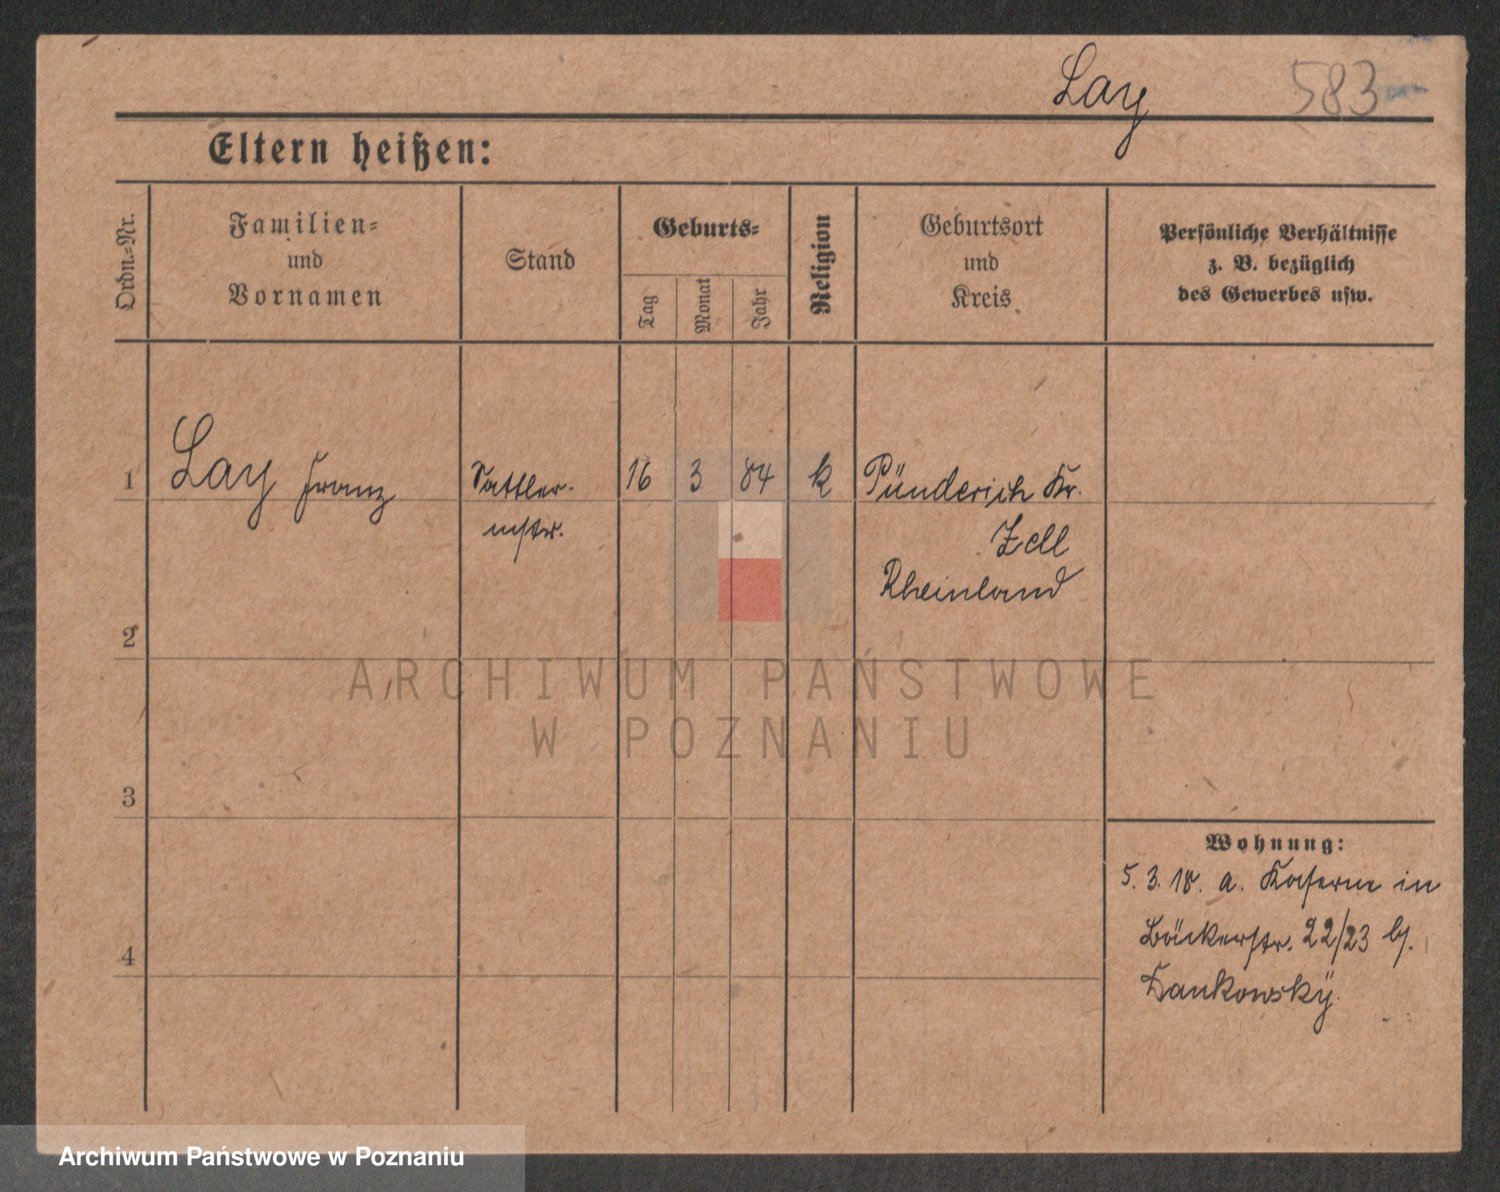 Lay 583
Eltern heißen:
Ordn.-Nr.
Familien-
und
Vornamen
Stand
Geburts-
Tag
Monat
Jahr
Religion
Geburtsort
und
Kreis
Persönliche Verhältnisse
z. B. bezüglich
des Gewerbes usw.
1 Lay Franz Sattler- 16 3 84 k Pünderich Kr.
mstr. Zell
Rheinland
2
3
4
Wohnung:
5. 3. 18. a. Kaserne in
Bäckerstr. 22/23 bj.
Dankowský
ARCHIWUM PAŃSTWOWE
W POZNANIU
Archiwum Państwowe w Poznaniu